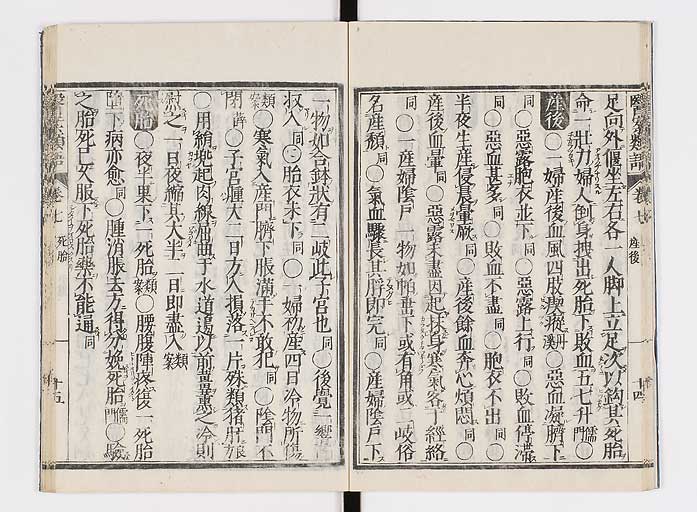 足向外偃坐左右各一人脚上立足次以鈎其死胎
命一壯力婦人倒身拽出死胎下敗血五七升 儒門 ○
產後 ○一婦產後血風四肢瘈瘲 丹溪 ○惡血凝臍下
同 ○惡露胞衣並下 同 ○惡露上行 同 ○敗血停滯
同 ○惡血甚多 同 ○敗血不盡 同 ○胞衣不出 同 ○
半夜生產侵晨暈厥 同 ○產後餘血奔心煩悶 同 ○
產後血暈 同 ○惡露未盡因起身寒氣客于經絡
同 ○一產婦陰戶一物如帕出下或有角或二岐俗
名產頹 同 ○氣血驟長其脬即完 同 ○產婦陰戶下
醫案類語 卷七 產後 十四
一物如合鉢狀有二岐此子宮也 同 ○後覺一響
収入 同 ○胎衣未下 同 ○一婦初產四日冷物所傷
類案 ○寒氣入產門臍下脹滿手不敢犯 同 ○陰門不
閉 薛 ○子宮腫大二日方入損落一片殊類猪肝
○用綃兜起肉線屈曲于水道邊以前薑薰之冷則
熨之一日夜縮其大半二日即盡入 類案
死胎 ○夜半果下一死胎 類案 ○腰腹陣疼復一死胎
墮下病亦愈 同 ○腫消脹去方得分娩死胎 儒門 ○驗
之胎死已久服下死胎藥不能通 同
醫案類語 卷七 死胎 十五